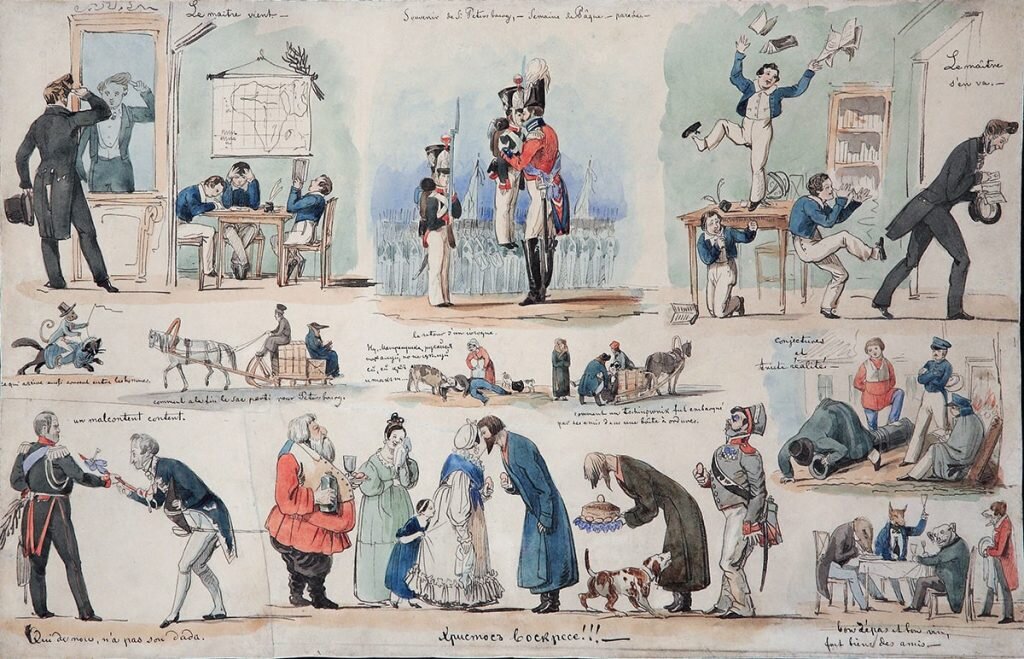 Le maître vient—
Souvenir de St Petersbourg,— Semaine de Pâque— parades—
Le maître
s'en va.—
le retour d'un ivrogne.
ce qui arrive aussi souvent entre les hommes.
comment a la fin le sac parti pour Petersbourg.
comment un tschinownik fut embarqué
par ses amis dans une boîte à ordures.
Conjectures
et
triste réalité.—
un malcontent content.
Qui de nous, n'a pas son dada.
Христосъ Воскресе!!!—
bon repas et bon vin,
font bien des amis—